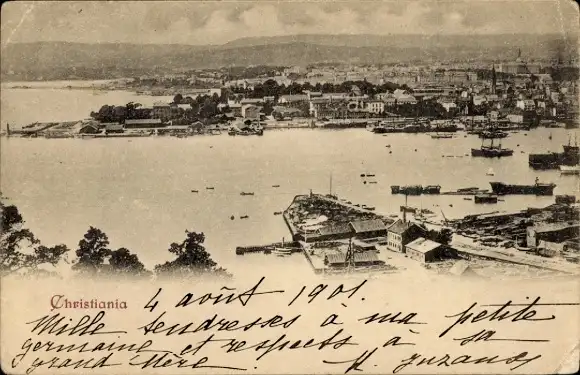 Christiania 4 août 1901.
Mille tendresses à ma petite
germaine et respects à sa
grand Mère.